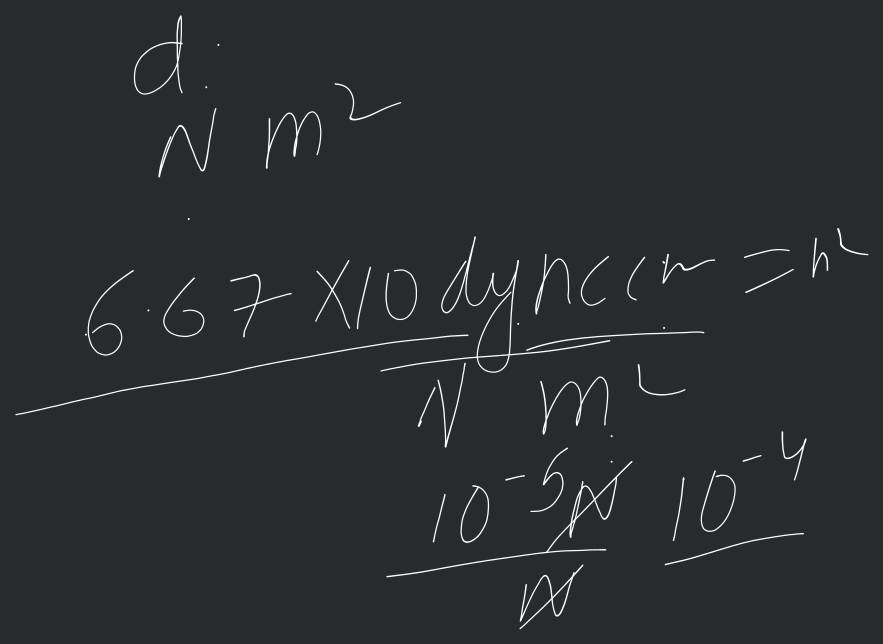 d.
N m²
6.67 ×10 dyne cm = n²
N m²
10⁻⁵N 10⁻⁴
N